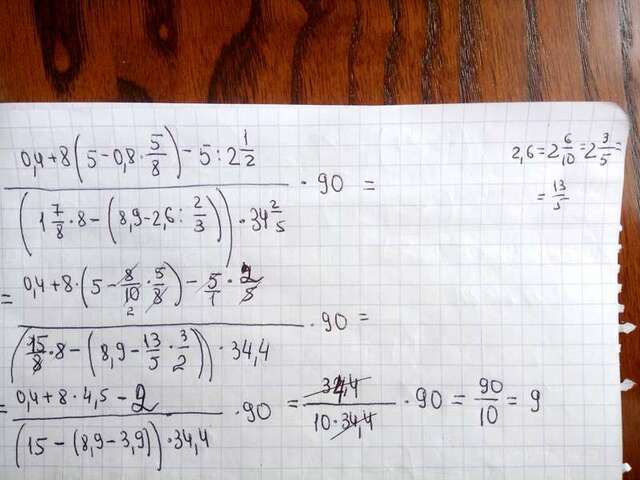 0,4+8(5-0,8·5/8)-5:2 1/2
(1 7/8·8-(8,9-2,6:2/3))·34 2/5 ·90 =
= 0,4+8·(5-8/10·5/8)-5/1·2/5
(15/8·8-(8,9-13/5·3/2))·34,4 ·90 =
0,4+8·4,5-2
(15-(8,9-3,9))·34,4 ·90 = 34,4/10·34,4 ·90 = 90/10 = 9
2,6=2 6/10=2 3/5=
=13/5